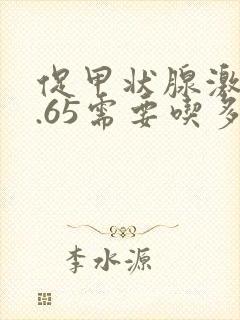 促甲状腺激
.65需要喫多
李水源